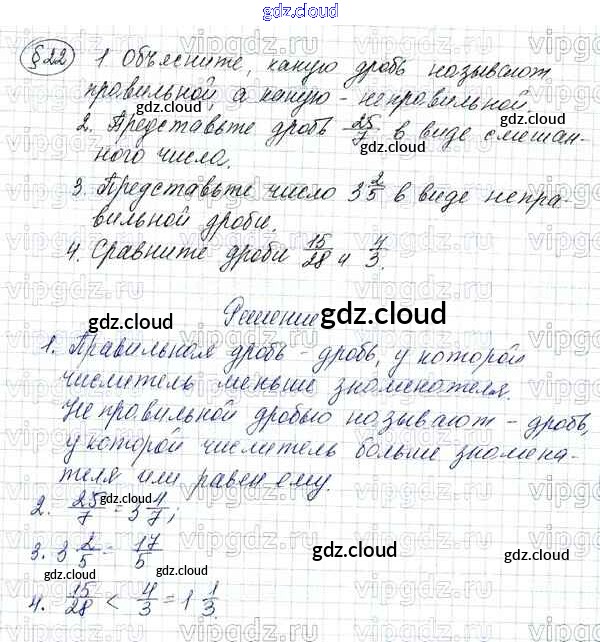 gdz.cloud
§22 1 Объясните, какую дробь называют
правильной, а какую – неправильной.
gdz.cloud gdz.cloud
2. Представьте дробь 25/7 в виде смешан-
ного числа.
gdz.cloud
3. Представьте число 3 2/5 в виде непра-
вильной дроби.
gdz.cloud
4. Сравните дроби 15/28 и 4/3.
Решение
gdz.cloud gdz.cloud
1. Правильная дробь – дробь, у которой
числитель меньше знаменателя.
gdz.cloud
Неправильной дробью называют – дробь,
у которой числитель больше знамена-
gdz.cloud
теля или равен ему.
2. 25/7 = 3 4/7;
gdz.cloud gdz.cloud
3. 3 2/5 = 17/5
gdz.cloud
4. 15/28 < 4/3 = 1 1/3.
gdz.cloud gdz.cloud